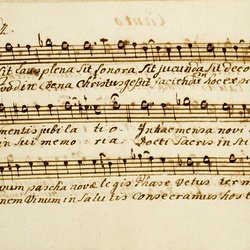 Canto
4.
Sit laus plena Sit sonora Sit jucunda Sit deco
uod in coena Christus gessit faciendum hoc exp
mentis jubilatio. In hac mensa novi
in sui memoria. Docti Sacris insti
vum pascha novae legis Phase Vetus term
nem Vinum in Salutis Consecramus hos t